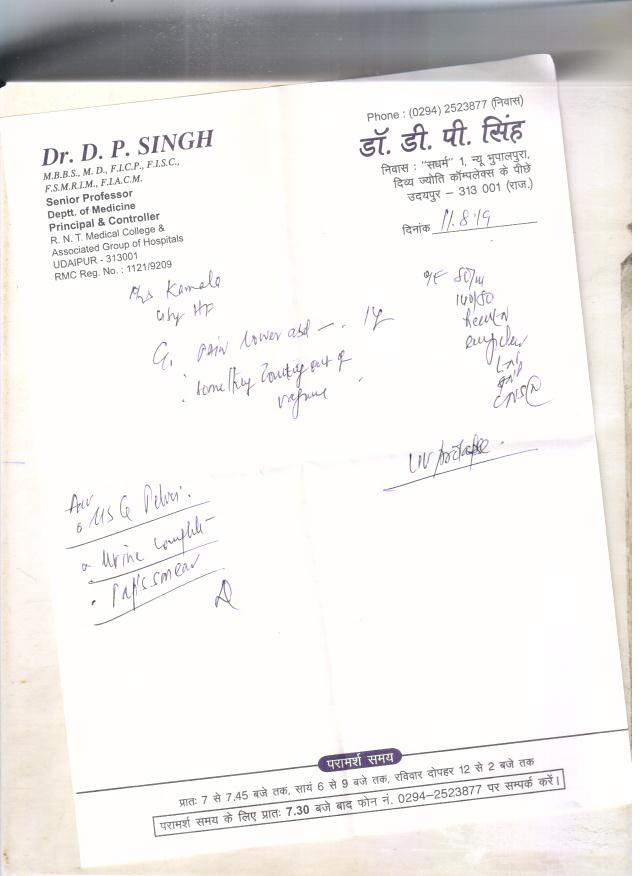 Dr. D. P. SINGH
M.B.B.S., M. D., F.I.C.P., F.I.S.C.,
F.S.M.R.I.M., F.I.A.C.M.
Senior Professor
Deptt. of Medicine
Principal & Controller
R. N. T. Medical College &
Associated Group of Hospitals
UDAIPUR - 313001
RMC Reg. No. : 1121/9209
Phone : (0294) 2523877 (निवास)
डॉ. डी. पी. सिंह
निवास : "सधर्म" 1, न्यू भुपालपुरा,
दिव्य ज्योति कॉम्पलेक्स के पीछे
उदयपुर - 313 001 (राज.)
दिनांक 11.8.19
Mrs Kamala
pain lower abd 1y
something coming out of
vagina
O/E 80/m
140/80
CNS N
UV prolapse
Adv
USG Pelvis
Urine complete
Pap's smear
परामर्श समय
प्रातः 7 से 7.45 बजे तक, सायं 6 से 9 बजे तक, रविवार दोपहर 12 से 2 बजे तक
परामर्श समय के लिए प्रातः 7.30 बजे बाद फोन नं. 0294-2523877 पर सम्पर्क करें।